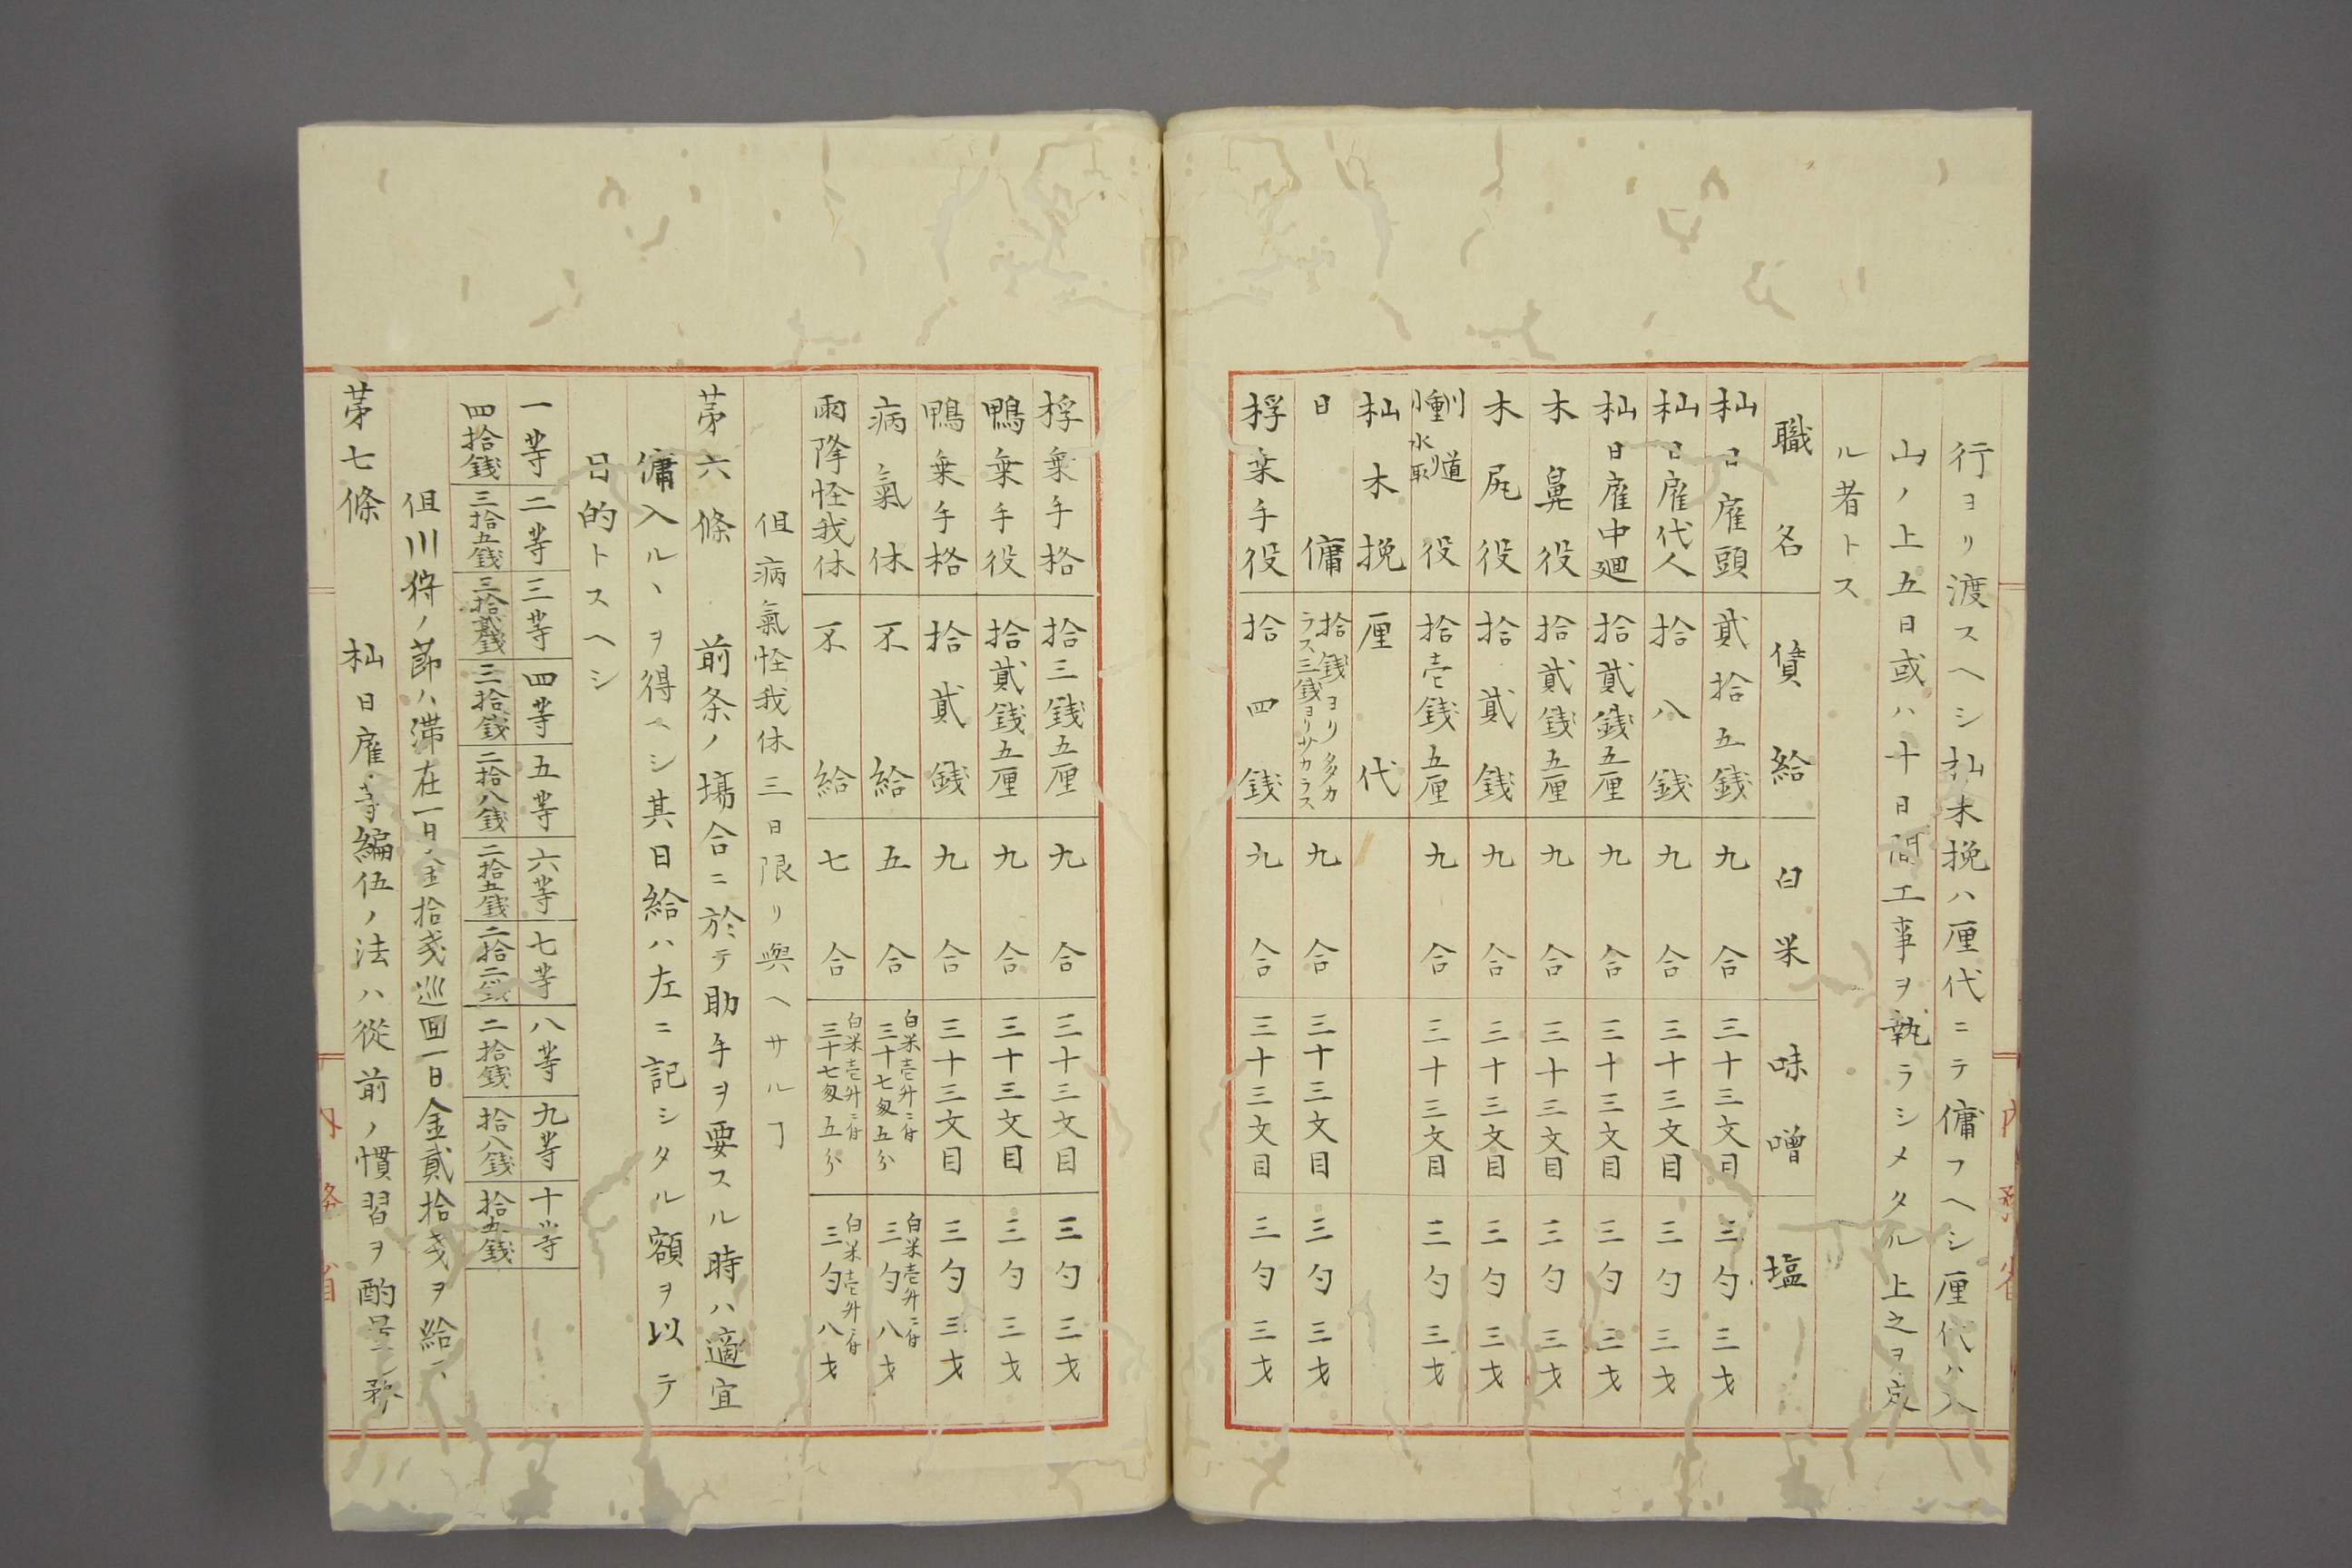 行ヨリ渡スヘシ杣木挽ハ厘代ニテ傭フヘシ厘代ハ入
山ノ上五日或ハ十日間工事ヲ執ラシメタル上之ヲ定
ル者トス
職名 償給 白米 味噌 塩
杣日雇頭 貳拾五銭 九合 三十三文目 三勺三才
杣日雇代人 拾八銭 九合 三十三文目 三勺三才
杣日雇中廻 拾貳銭五厘 九合 三十三文目 三勺三才
木鼻役 拾貳銭五厘 九合 三十三文目 三勺三才
木尻役 拾貳銭 九合 三十三文目 三勺三才
役 拾壱銭五厘 九合 三十三文目 三勺三才
杣木挽 厘代
日傭 拾銭ヨリ多カラス三銭ヨリサカラス 九合 三十三文目 三勺三才
桴乗手役 拾四銭 九合 三十三文目 三勺三才
桴乗手格 拾三銭五厘 九合 三十三文目 三勺三才
鴨乗手役 拾貳銭五厘 九合 三十三文目 三勺三才
鴨乗手格 拾貳銭 九合 三十三文目 三勺三才
病氣休 不給 五合 白米壱升ニ付三十七匁五分 白米壱升ニ付三勺八才
雨降怪我休 不給 七合 白米壱升ニ付三十七匁五分 白米壱升ニ付三勺八才
伹病氣怪我休三日限リ與ヘサルヿ
苐六條 前条ノ塲合ニ於テ助手ヲ要スル時ハ適宜
傭入ルヽヲ得ヘシ其日給ハ左ニ記シタル額ヲ以テ
目的トスヘシ
一等 二等 三等 四等 五等 六等 七等 八等 九等 十等
四拾銭 三拾五銭 三拾貳銭 三拾銭 二拾八銭 二拾五銭 二拾二銭 二拾銭 拾八銭 拾五銭
伹川狩ノ節ハ滞在一日金拾戔巡囬一日金貳拾戔ヲ給ス
苐七條 杣日雇等編伍ノ法ハ從前ノ慣習ヲ酌量シ
内務省